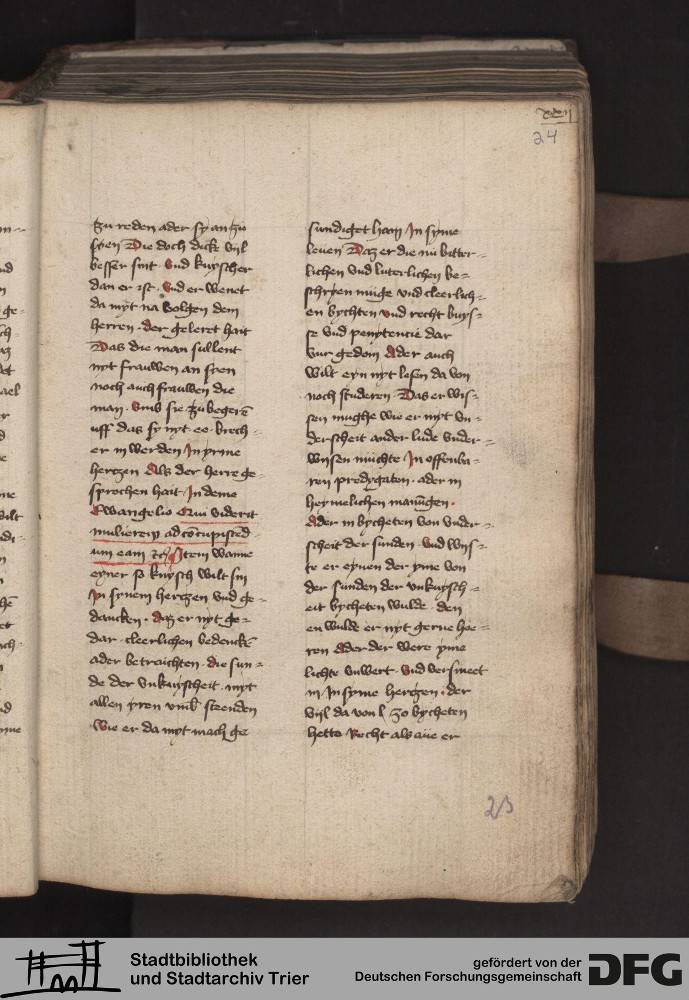 xxij
24
zu reden ader sy an zu
seen Die doch dick vijl
besser sint · Vnd kuyscher
dan er ist · Vnd er wenet
da myt na volgen dem
herren · der geleret hait
Das die man sullent
nyt frauwen an seen
noch auch frauwen die
man · Vmb sie zu begerē
uff das sy nyt · ee · brech=
er in werden In yrme
hertzen Als der herre ge=
sprochen hait · In deme
Ewangelio Qui viderit
mulierem ad cōcupiscēd
um eam ꝛc Item wanne
eyner so kuysch wilt sin
In synem hertzen vnd ge=
dancken · daz er nyt ge=
dar · cleerlichen bedenckē
ader betraichten · die sun=
de der vnkuyscheit · myt
allen yren vmb steenden
Wie er da myt mach ge
sundiget han In syme
leuen Daz er die nü bitter=
lichen vnd luterlichen be=
schryen muge vnd cleerlich=
en bychten vnd recht buys=
se vnd penytencie dar
vur gedoin Ader auch
wilt eyn nyt lesen da von
noch studeren · Das er wis=
sen mughe wie er myt vn=
derscheit ander lude vnder=
wysen muchte · In offenba=
ren predygaten · ader in
heymelichen manūgen ·
Ader in bycheten von vnder=
scheit der sunden · Vnd wys=
te er eynen der yme von
der sunden der vnkuysch=
eit bycheten wulde · den
en wulde er nyt gerne hoe=
ren Ader der were yme
lichte vnwert · Vnd versmeet
in In syme hertzen · der
vijl da von zo bycheten
hette Recht als aue er
23
Stadtbibliothek
und Stadtarchiv Trier
gefördert von der
Deutschen Forschungsgemeinschaft
DFG